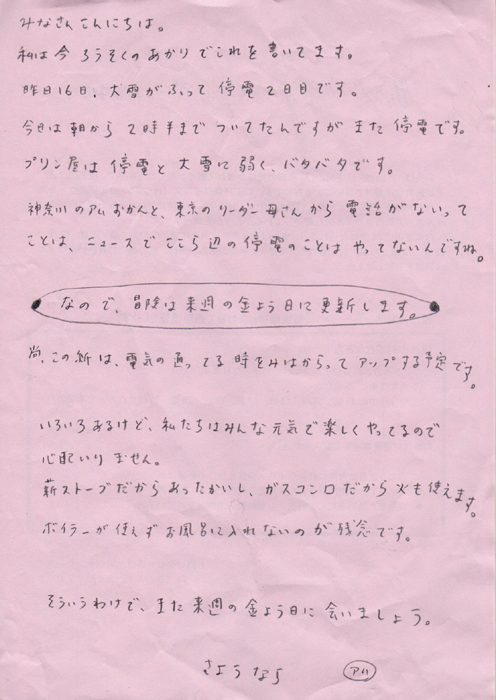 みなさんこんにちは。
私は今ろうそくのあかりでこれを書いてます。
昨日16日、大雪がふって停電2日目です。
今日は朝から2時半までついてたんですがまた停電です。
プリン屋は停電と大雪に弱く、バタバタです。
神奈川のアムおかんと、東京のリーダー母さんから電話がないって
ことは、ニュースでここら辺の停電のことはやってないんですね。
なので、冒険は来週の金よう日に更新します。
尚、この紙は、電気の通ってる時をみはからってアップする予定です。
いろいろあるけど、私たちはみんな元気で楽しくやってるので
心配いりません。
薪ストーブだからあったかいし、ガスコンロだから火も使えます。
ボイラーが使えずお風呂に入れないのが残念です。
そういうわけで、また来週の金よう日に会いましょう。
さようなら アム